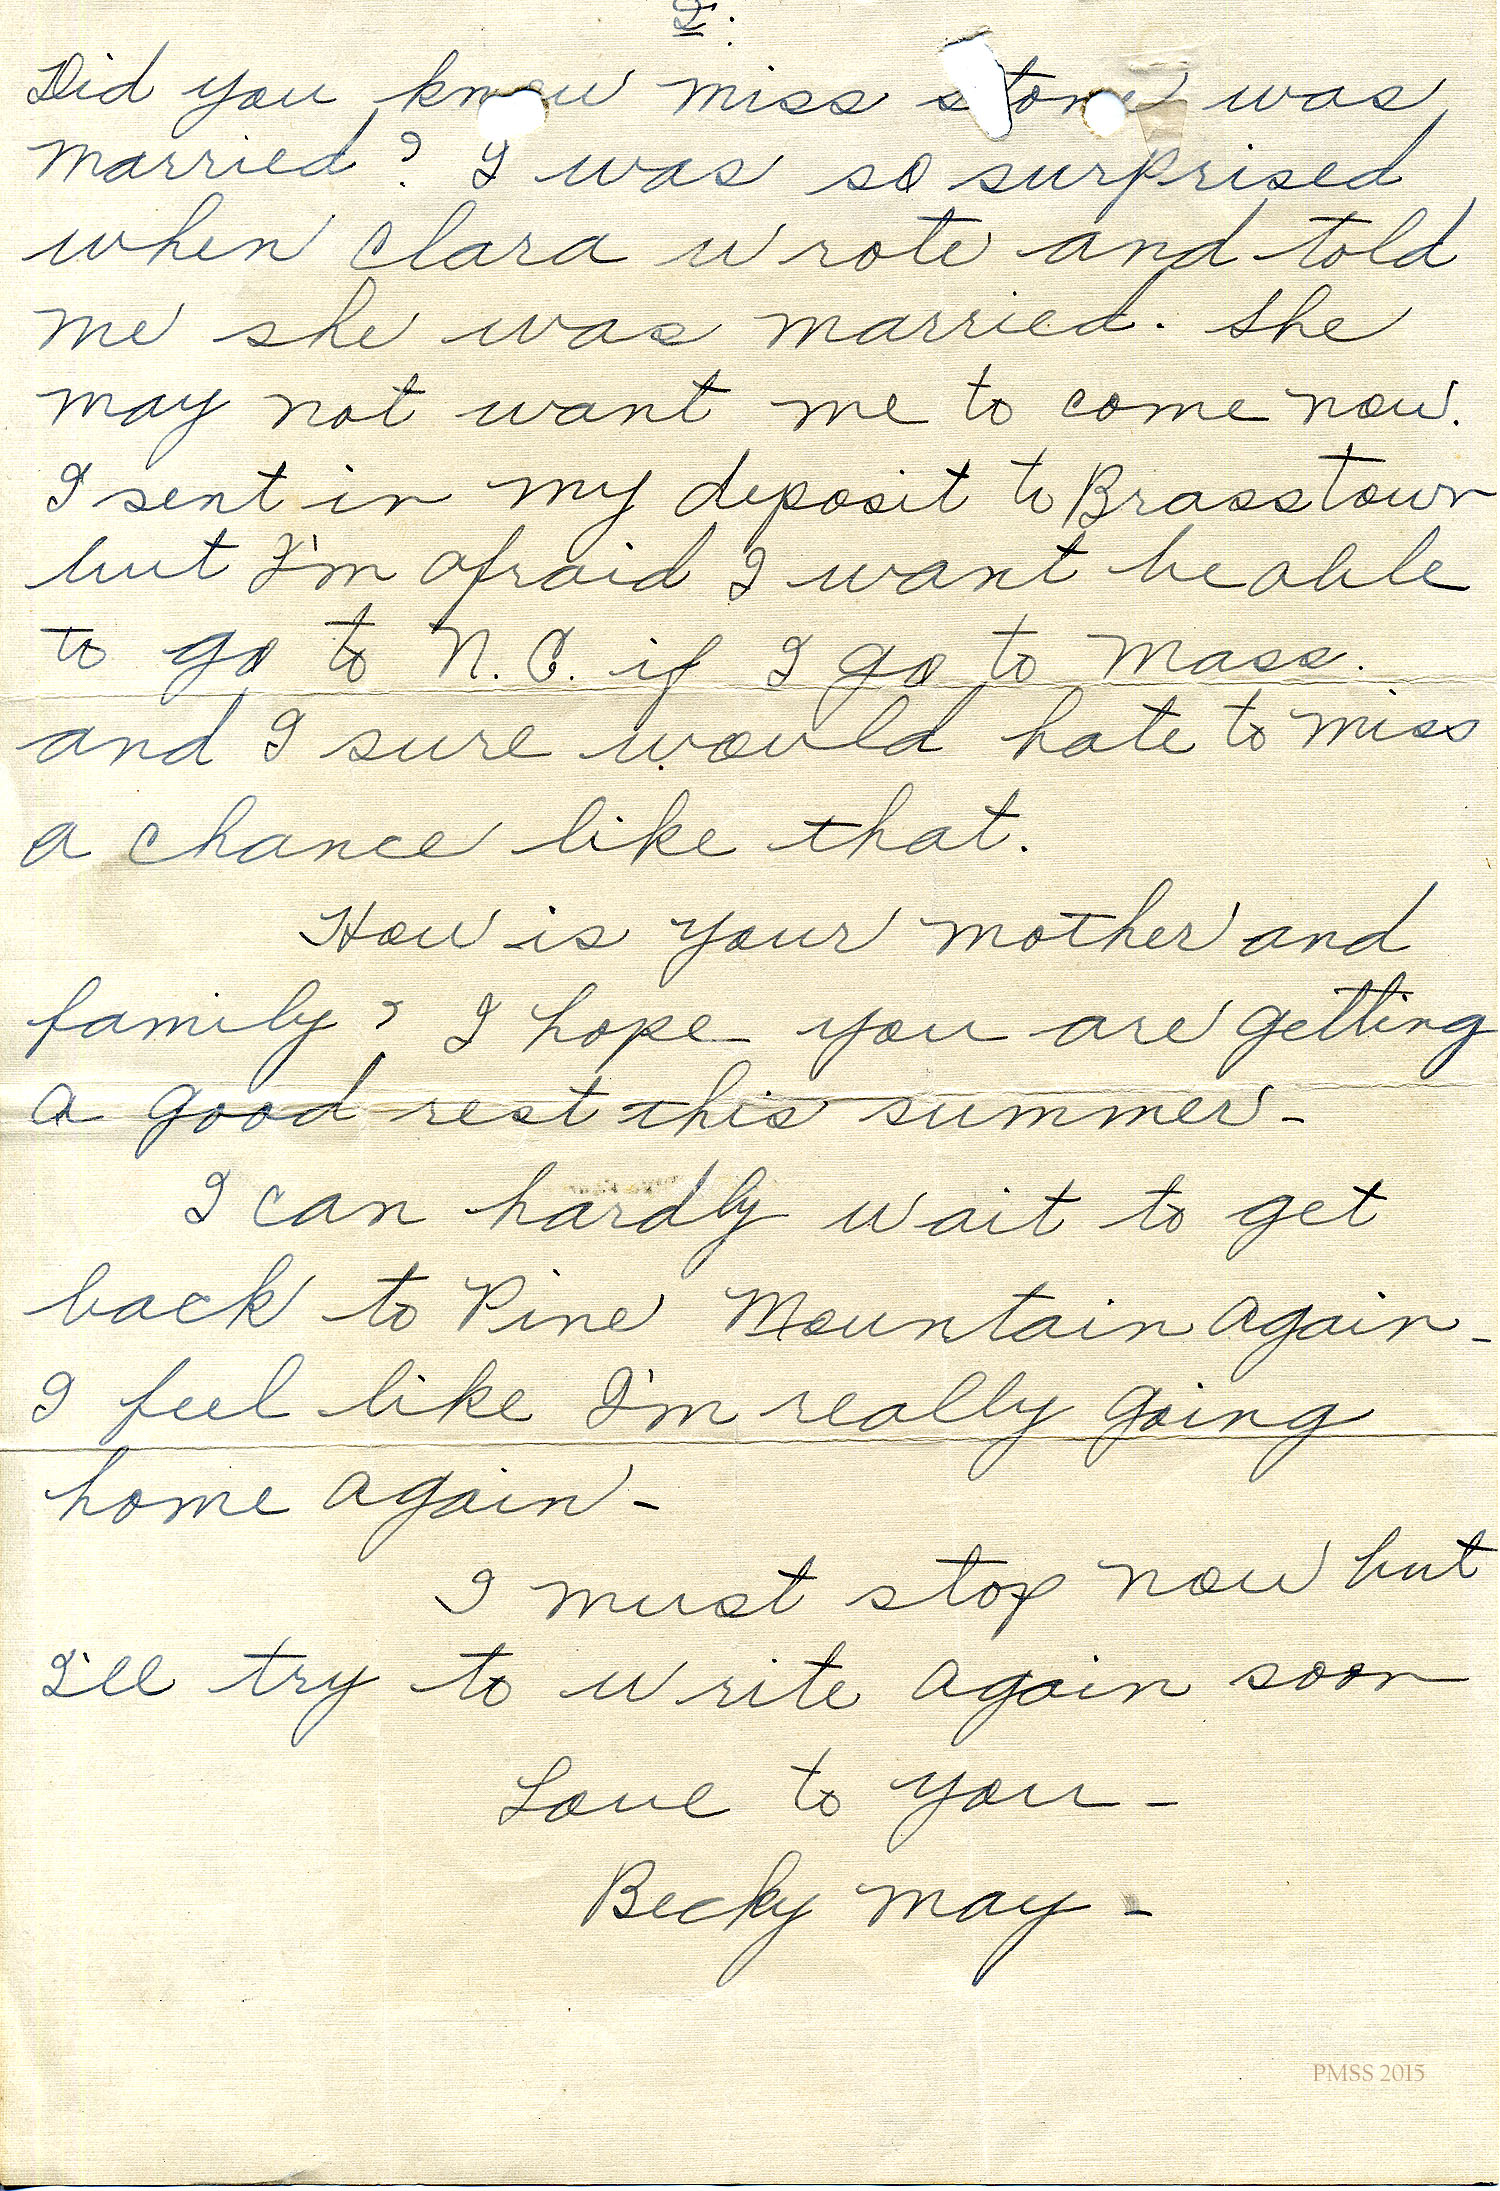 2.
Did you know miss stone was
married? I was so surprised
when Clara wrote and told
me she was married. She
may not want me to come now.
I sent in my deposit to Brasstown
but I'm afraid I want be able
to go to N.C. if I go to Mass.
and I sure would hate to miss
a chance like that.
How is your mother and
family? I hope you are getting
a good rest this summer-
I can hardly wait to get
back to Pine Mountain again-
I feel like I'm really going
home again-
I must stop now but
I'll try to write again soon
Love to you-
Becky May-
PMSS 2015